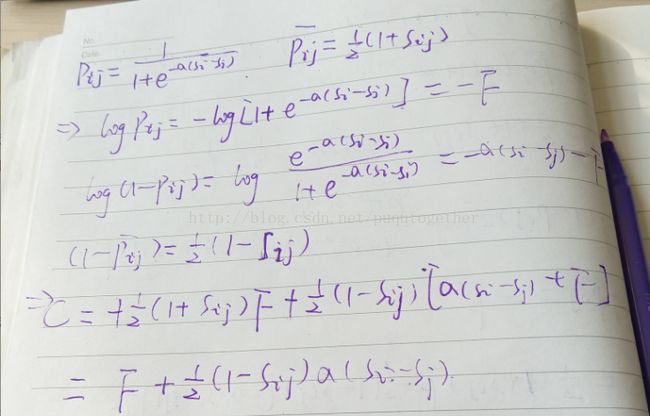 No.
Date
Pij = 1/(1+e^{-a(si-sj)})   P̄ij = 1/2(1+Sij)
=> log Pij = -log[1+e^{-a(si-sj)}] = -F
log(1-Pij) = log e^{-a(si-sj)}/(1+e^{-a(si-sj)}) = -a(si-sj)-F
http://blog.csdn.net/puqutogether
(1-P̄ij) = 1/2(1-Sij)
=> C = +1/2(1+Sij)F + 1/2(1-Sij)[a(si-sj)+F]
= F + 1/2(1-Sij)a(si-sj)